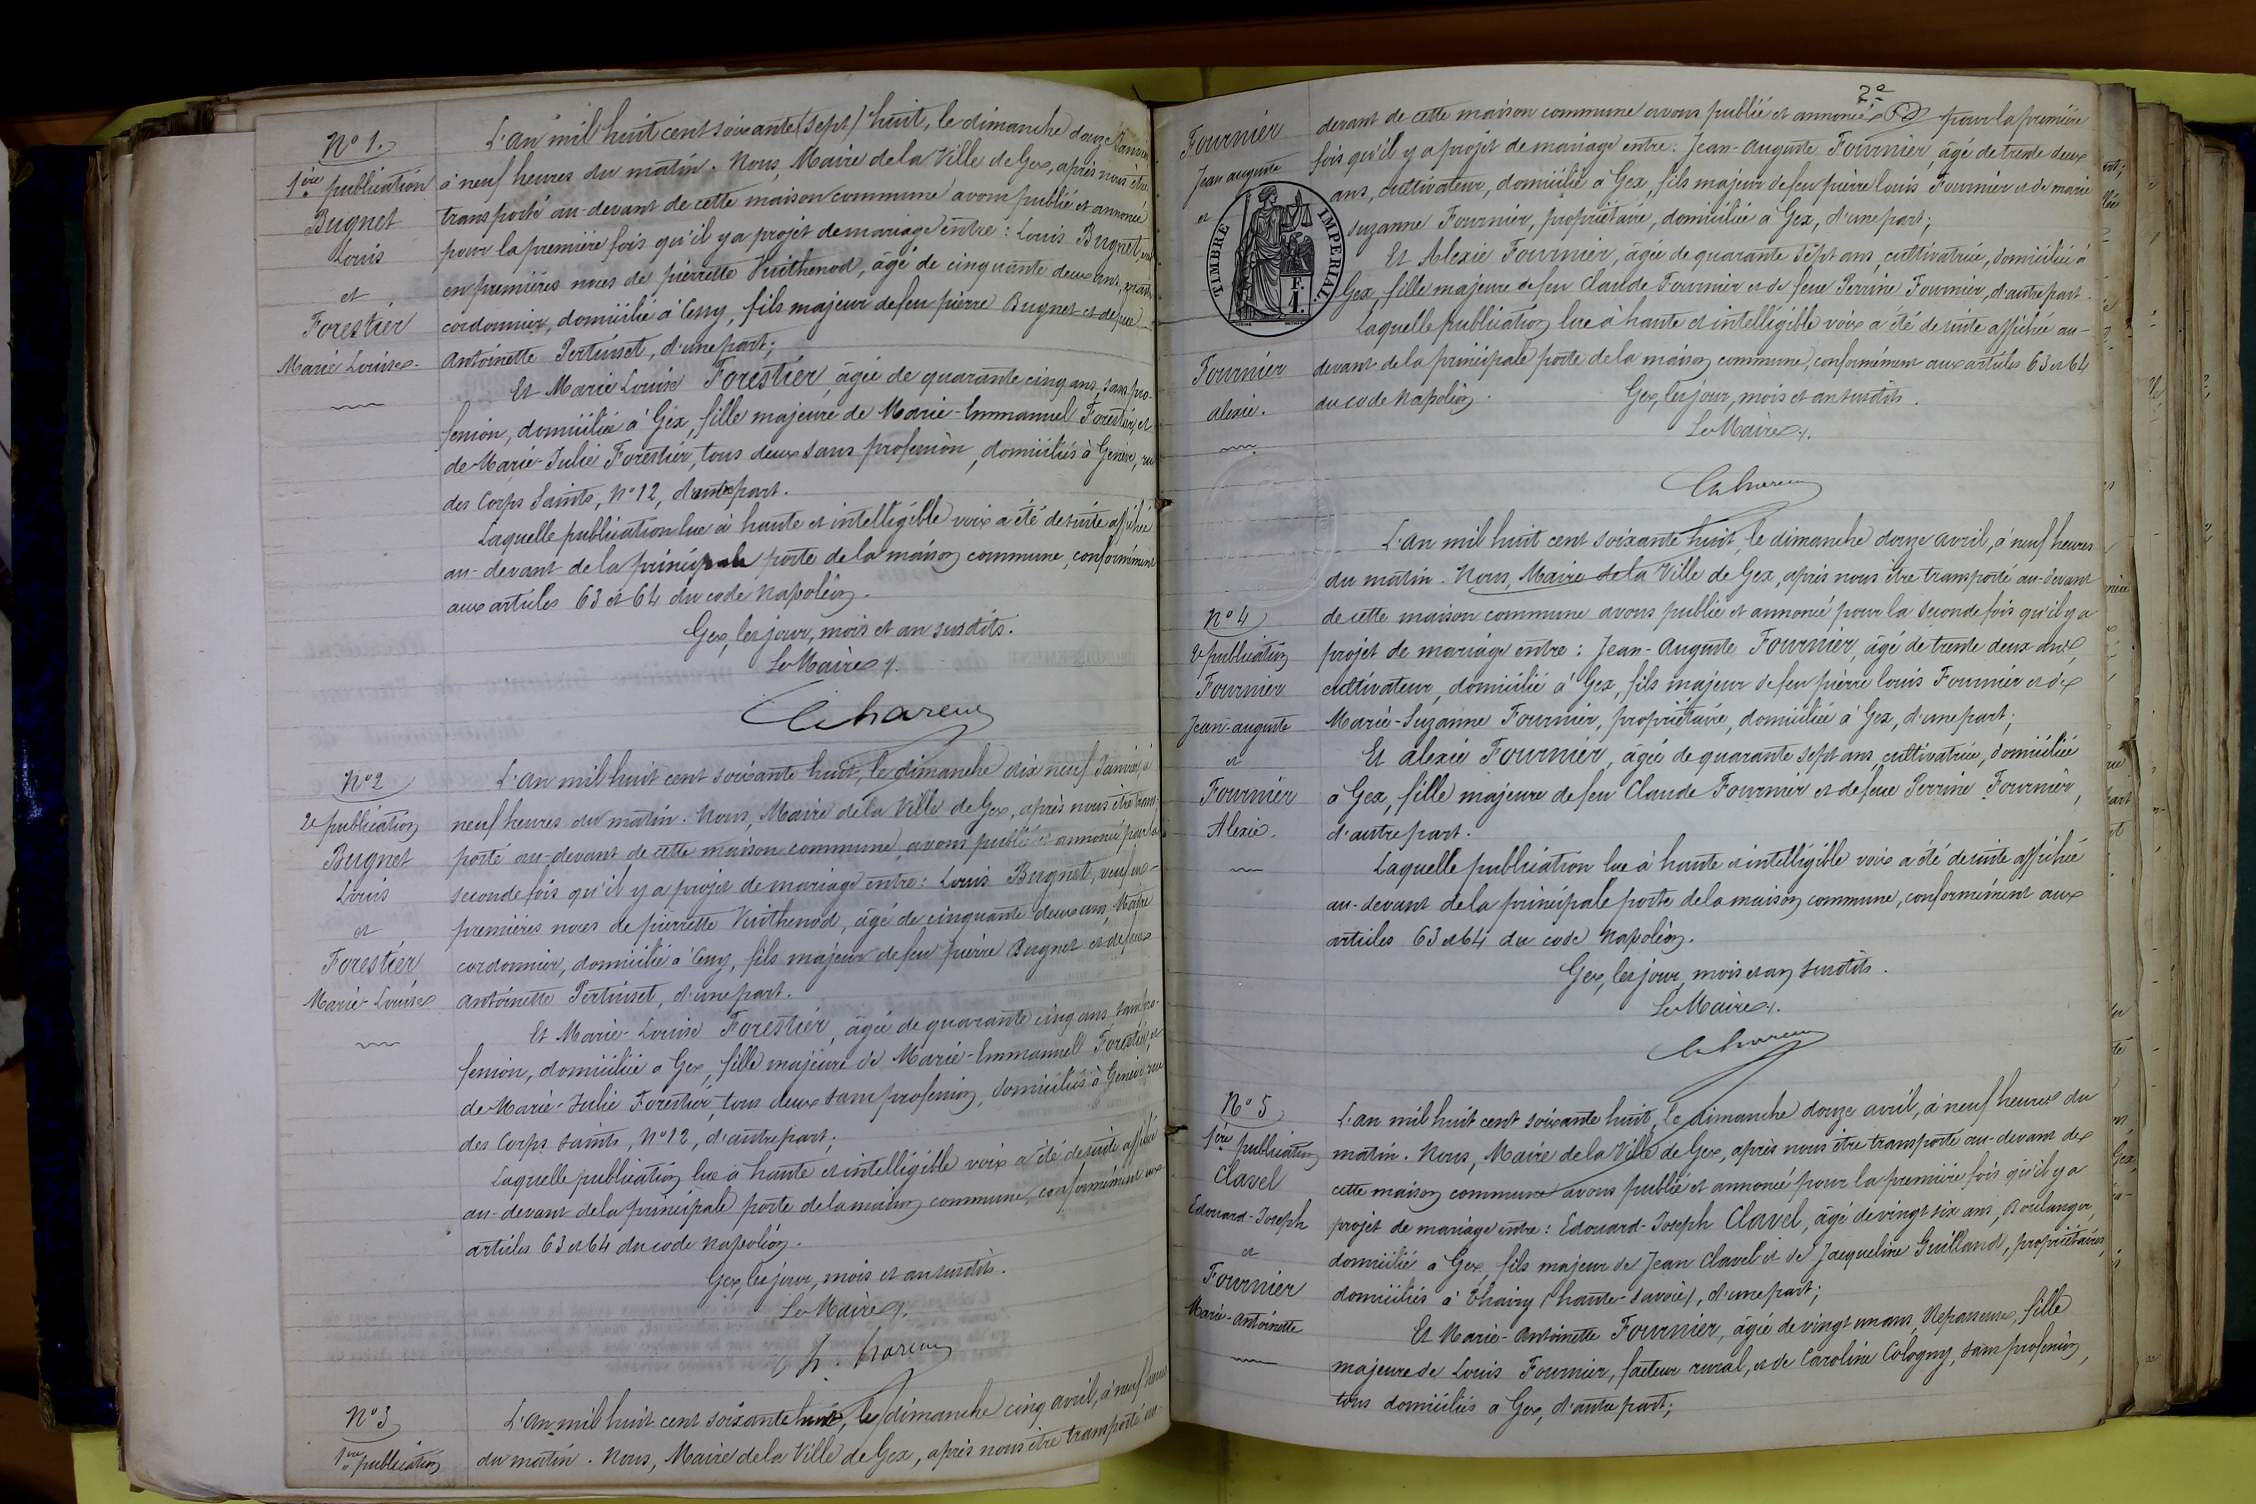 N° 1.
1ère publication
Bugnet
Louis
et
Forestier
Marie Louise.
L'an mil huit cent soixante (sept) huit, le dimanche douze Janvier
à neuf heures du matin. Nous, Maire de la Ville de Gex, après nous être
transporté au-devant de cette maison commune avons publié et annoncé
pour la première fois qu'il y a projet de mariage entre : Louis Bugnet,
en premières noces de pierrette Vuithenod, âgé de cinquante deux ans,
cordonnier, domicilié à Cessy, fils majeur de feu pierre Bugnet et de feue
Antoinette Pertuiset, d'une part;
Et Marie Louise Forestier, âgée de quarante cinq ans, sans pro-
fession, domiciliée à Gex, fille majeure de Marie-Emmanuel Forestier, et
de Marie-Julie Forestier, tous deux sans profession, domiciliés à Genève, rue
des Corps Saints, N° 12, d'autre part.
Laquelle publication lue à haute et intelligible voix a été de suite affichée
au-devant de la principale porte de la maison commune, conformément
aux articles 63 et 64 du code Napoléon.
Gex, les jour, mois et an susdits.
Le Maire
N° 2
2e publication
Bugnet
Louis
et
Forestier
Marie-Louise
L'an mil huit cent soixante huit, le dimanche dix neuf Janvier, à
neuf heures du matin. Nous, Maire de la Ville de Gex, après nous être trans-
porté au-devant de cette maison commune, avons publié et annoncé pour la
seconde fois qu'il y a projet de mariage entre : Louis Bugnet, veuf en
premières noces de pierrette Vuithenod, âgé de cinquante deux ans, Maître
cordonnier, domicilié à Cessy, fils majeur de feu pierre Bugnet et de feue
Antoinette Pertuiset, d'une part.
Et Marie-Louise Forestier, âgée de quarante cinq ans, sans pro-
fession, domiciliée à Gex, fille majeure de Marie-Emmanuel Forestier, et
de Marie-Julie Forestier, tous deux sans profession, domiciliés à Genève rue
des Corps saints, N° 12, d'autre part;
Laquelle publication lue à haute et intelligible voix a été de suite affichée
au-devant de la principale porte de la maison commune, conformément aux
articles 63 et 64 du code Napoléon.
Gex, les jour, mois et an susdits.
Le Maire
N° 3
1ère publication
L'an mil huit cent soixante huit, le dimanche cinq avril, à neuf heures
du matin. Nous, Maire de la Ville de Gex, après nous être transporté au-
2e
Fournier
Jean auguste
et
Fournier
alexie.
TIMBRE IMPÉRIAL.
F.
1.
devant de cette maison commune avons publié et annoncé pour la première
fois qu'il y a projet de mariage entre : Jean-Auguste Fournier, âgé de trente deux
ans, cultivateur, domicilié à Gex, fils majeur de feu pierre louis Fournier et de marie
suzanne Fournier, propriétaire, domiciliée à Gex, d'une part;
Et Alexie Fournier, âgée de quarante sept ans, cultivatrice, domiciliée à
Gex, fille majeure de feu Claude Fournier et de feue Perrine Fournier, d'autre part.
Laquelle publication lue à haute et intelligible voix a été de suite affichée au-
devant de la principale porte de la maison commune, conformément aux articles 63 et 64
du code Napoléon. Gex, les jour, mois et an susdits.
Le Maire
N° 4
2e publication
Fournier
Jean-auguste
et
Fournier
Alexie.
L'an mil huit cent soixante huit, le dimanche douze avril, à neuf heures
du matin. Nous, Maire de la Ville de Gex, après nous être transporté au-devant
de cette maison commune avons publié et annoncé pour la seconde fois qu'il y a
projet de mariage entre : Jean-Auguste Fournier, âgé de trente deux ans,
cultivateur, domicilié à Gex, fils majeur de feu pierre louis Fournier et de
Marie-Suzanne Fournier, propriétaire, domiciliée à Gex, d'une part;
Et alexie Fournier, âgée de quarante sept ans, cultivatrice, domiciliée
à Gex, fille majeure de feu Claude Fournier et de feue Perrine Fournier,
d'autre part.
Laquelle publication lue à haute et intelligible voix a été de suite affichée
au-devant de la principale porte de la maison commune, conformément aux
articles 63 et 64 du code Napoléon.
Gex, les jour, mois et an susdits.
Le Maire
N° 5
1ère publication
Clavel
Edouard-Joseph
et
Fournier
Marie-Antoinette
L'an mil huit cent soixante huit, le dimanche douze avril, à neuf heures du
matin. Nous, Maire de la Ville de Gex, après nous être transporté au-devant de
cette maison commune avons publié et annoncé pour la première fois qu'il y a
projet de mariage entre : Edouard-Joseph Clavel, âgé de vingt six ans, Boulanger,
domicilié à Gex, fils majeur de Jean Clavel et de Jacqueline Guilland, propriétaires,
domiciliés à Thairy (haute-Savoie), d'une part;
Et Marie-Antoinette Fournier, âgée de vingt un ans, Repasseuse, fille
majeure de Louis Fournier, facteur rural, et de Caroline Cologny, sans profession,
tous domiciliés à Gex, d'autre part;